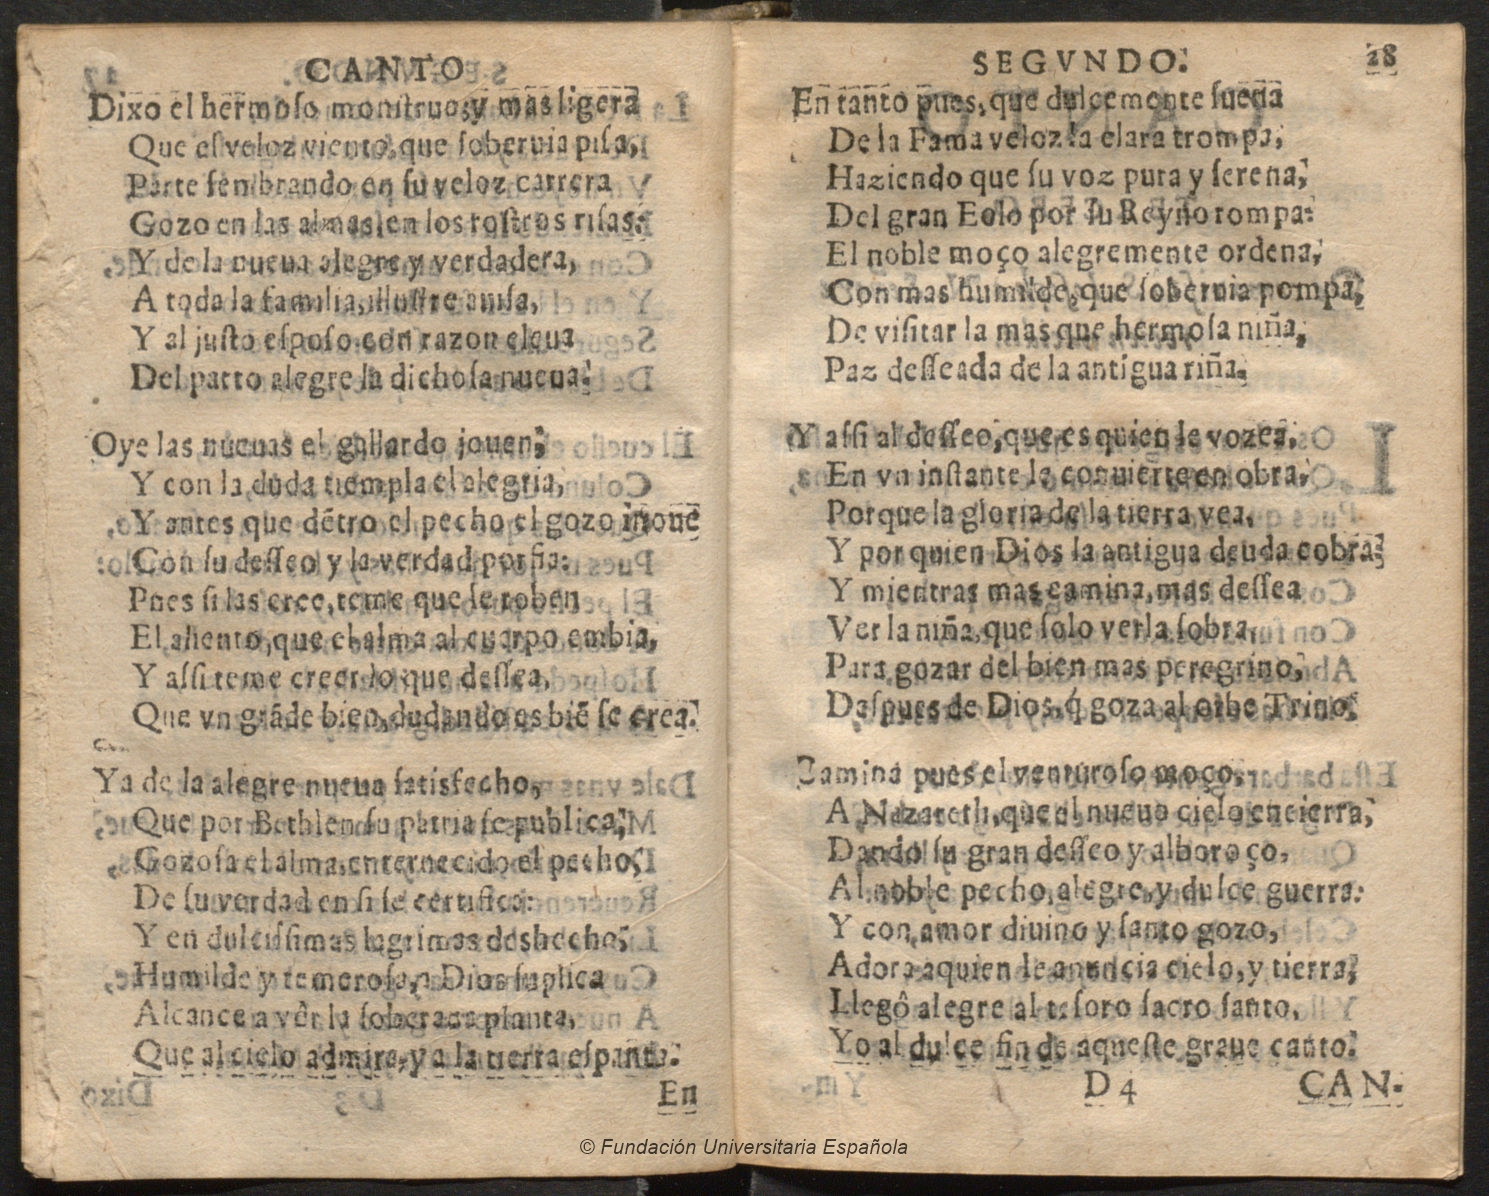 CANTO
Dixo el hermoso monstruo, y mas ligera
Que es veloz viento, que soberuia pisa,
Parte sembrando en su veloz carrera
Gozo en las almas, en los rostros risas:
Y de la nueua alegre y verdadera,
A toda la familia, illustre auisa,
Y al justo esposo con razon eleua
Del parto alegre la dichosa nueua.
Oye las nueuas el gallardo jouen,
Y con la duda tiempla el alegria,
Y antes que dẽtro el pecho el gozo inoue
Con su desseo y la verdad porfia:
Pues si las cree, teme que le roben
El aliento, que el alma al cuerpo embia,
Y assi teme creer lo que dessea,
Que vn grãde bien, dudando es biẽ se crea.
Ya de la alegre nueua satisfecho,
Que por Bethlen su patria se publica,
Gozosa el alma, enternecido el pecho,
De su verdad en si se certifica:
Y en dulcissimas lagrimas deshecho,
Humilde y temerosa, a Dios suplica
Alcance a vêr la soberana planta,
Que al cielo admira, y a la tierra espanta.
En
SEGVNDO.
28
En tanto pues, que dulcemente suena
De la Fama veloz la clara trompa,
Haziendo que su voz pura y serena,
Del gran Eolo por su Reyno rompa:
El noble moço alegremente ordena,
Con mas humilde, que soberuia pompa,
De visitar la mas que hermosa niña,
Paz desseada de la antigua riña.
Y assi al desseo, que es quien le vozea,
En vn instante le conuierte en obra,
Porque la gloria de la tierra vea,
Y por quien Dios la antigua deuda cobra:
Y mientras mas camina, mas dessea
Ver la niña, que solo verla sobra,
Para gozar del bien mas peregrino,
Despues de Dios, q́ goza al orbe Trino.
Camina pues el venturoso moço,
A Nazareth, que el nueuo cielo encierra,
Dando su gran desseo y alboroço,
Al noble pecho, alegre, y dulce guerra:
Y con amor diuino y santo gozo,
Adora aquien le anuncia cielo, y tierra,
Llegô alegre al tesoro sacro santo,
Yo al dulce fin de aqueste graue canto.
D 4
CAN-
© Fundación Universitaria Española